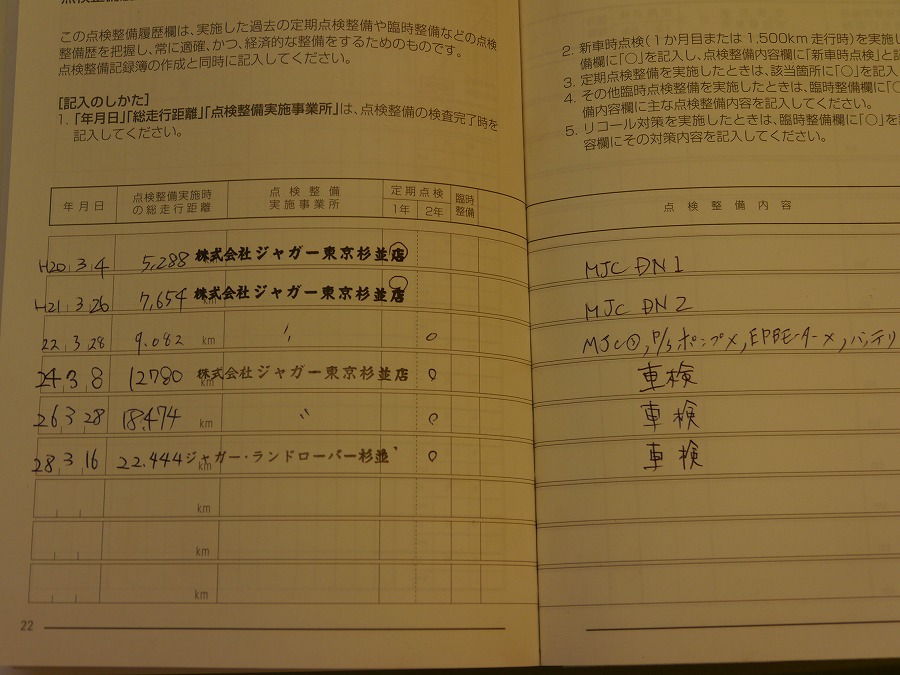 この点検整備履歴欄は、実施した過去の定期点検整備や臨時整備などの点検
整備歴を把握し、常に適確、かつ、経済的な整備をするためのものです。
点検整備記録簿の作成と同時に記入してください。
[記入のしかた]
1. 「年月日」「総走行距離」「点検整備実施事業所」は、点検整備の検査完了時を
記入してください。
年月日 点検整備実施時の総走行距離 点検整備実施事業所 定期点検 1年 2年 臨時整備
H20 3 4 5,288 株式会社ジャガー東京杉並店
H21 3 26 7,654 km 株式会社ジャガー東京杉並店
22 3 28 9.082 km 〃 ○
24 3 8 12780 km 株式会社ジャガー東京杉並店 ○
26 3 28 18.474 km 〃 ○
28 3 16 22.444 km ジャガー・ランドローバー杉並 ○
km
km
km
22
2. 新車時点検(1か月目または1,500km走行時)を実施し
備欄に「○」を記入し、点検整備内容欄に「新車時点検」と
3. 定期点検整備を実施したときは、該当箇所に「○」を記入
4. その他臨時点検整備を実施したときは、臨時整備欄に「○
備内容欄に主な点検整備内容を記入してください。
5. リコール対策を実施したときは、臨時整備欄に「○」を
容欄にその対策内容を記入してください。
点検整備内容
MJC DN1
MJC DN2
MJC③, P/Sポンプメ, EPBモーターメ, バッテリ
車検
車検
車検